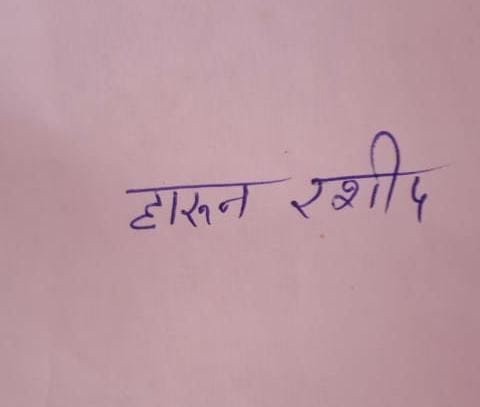 हारून रशीद